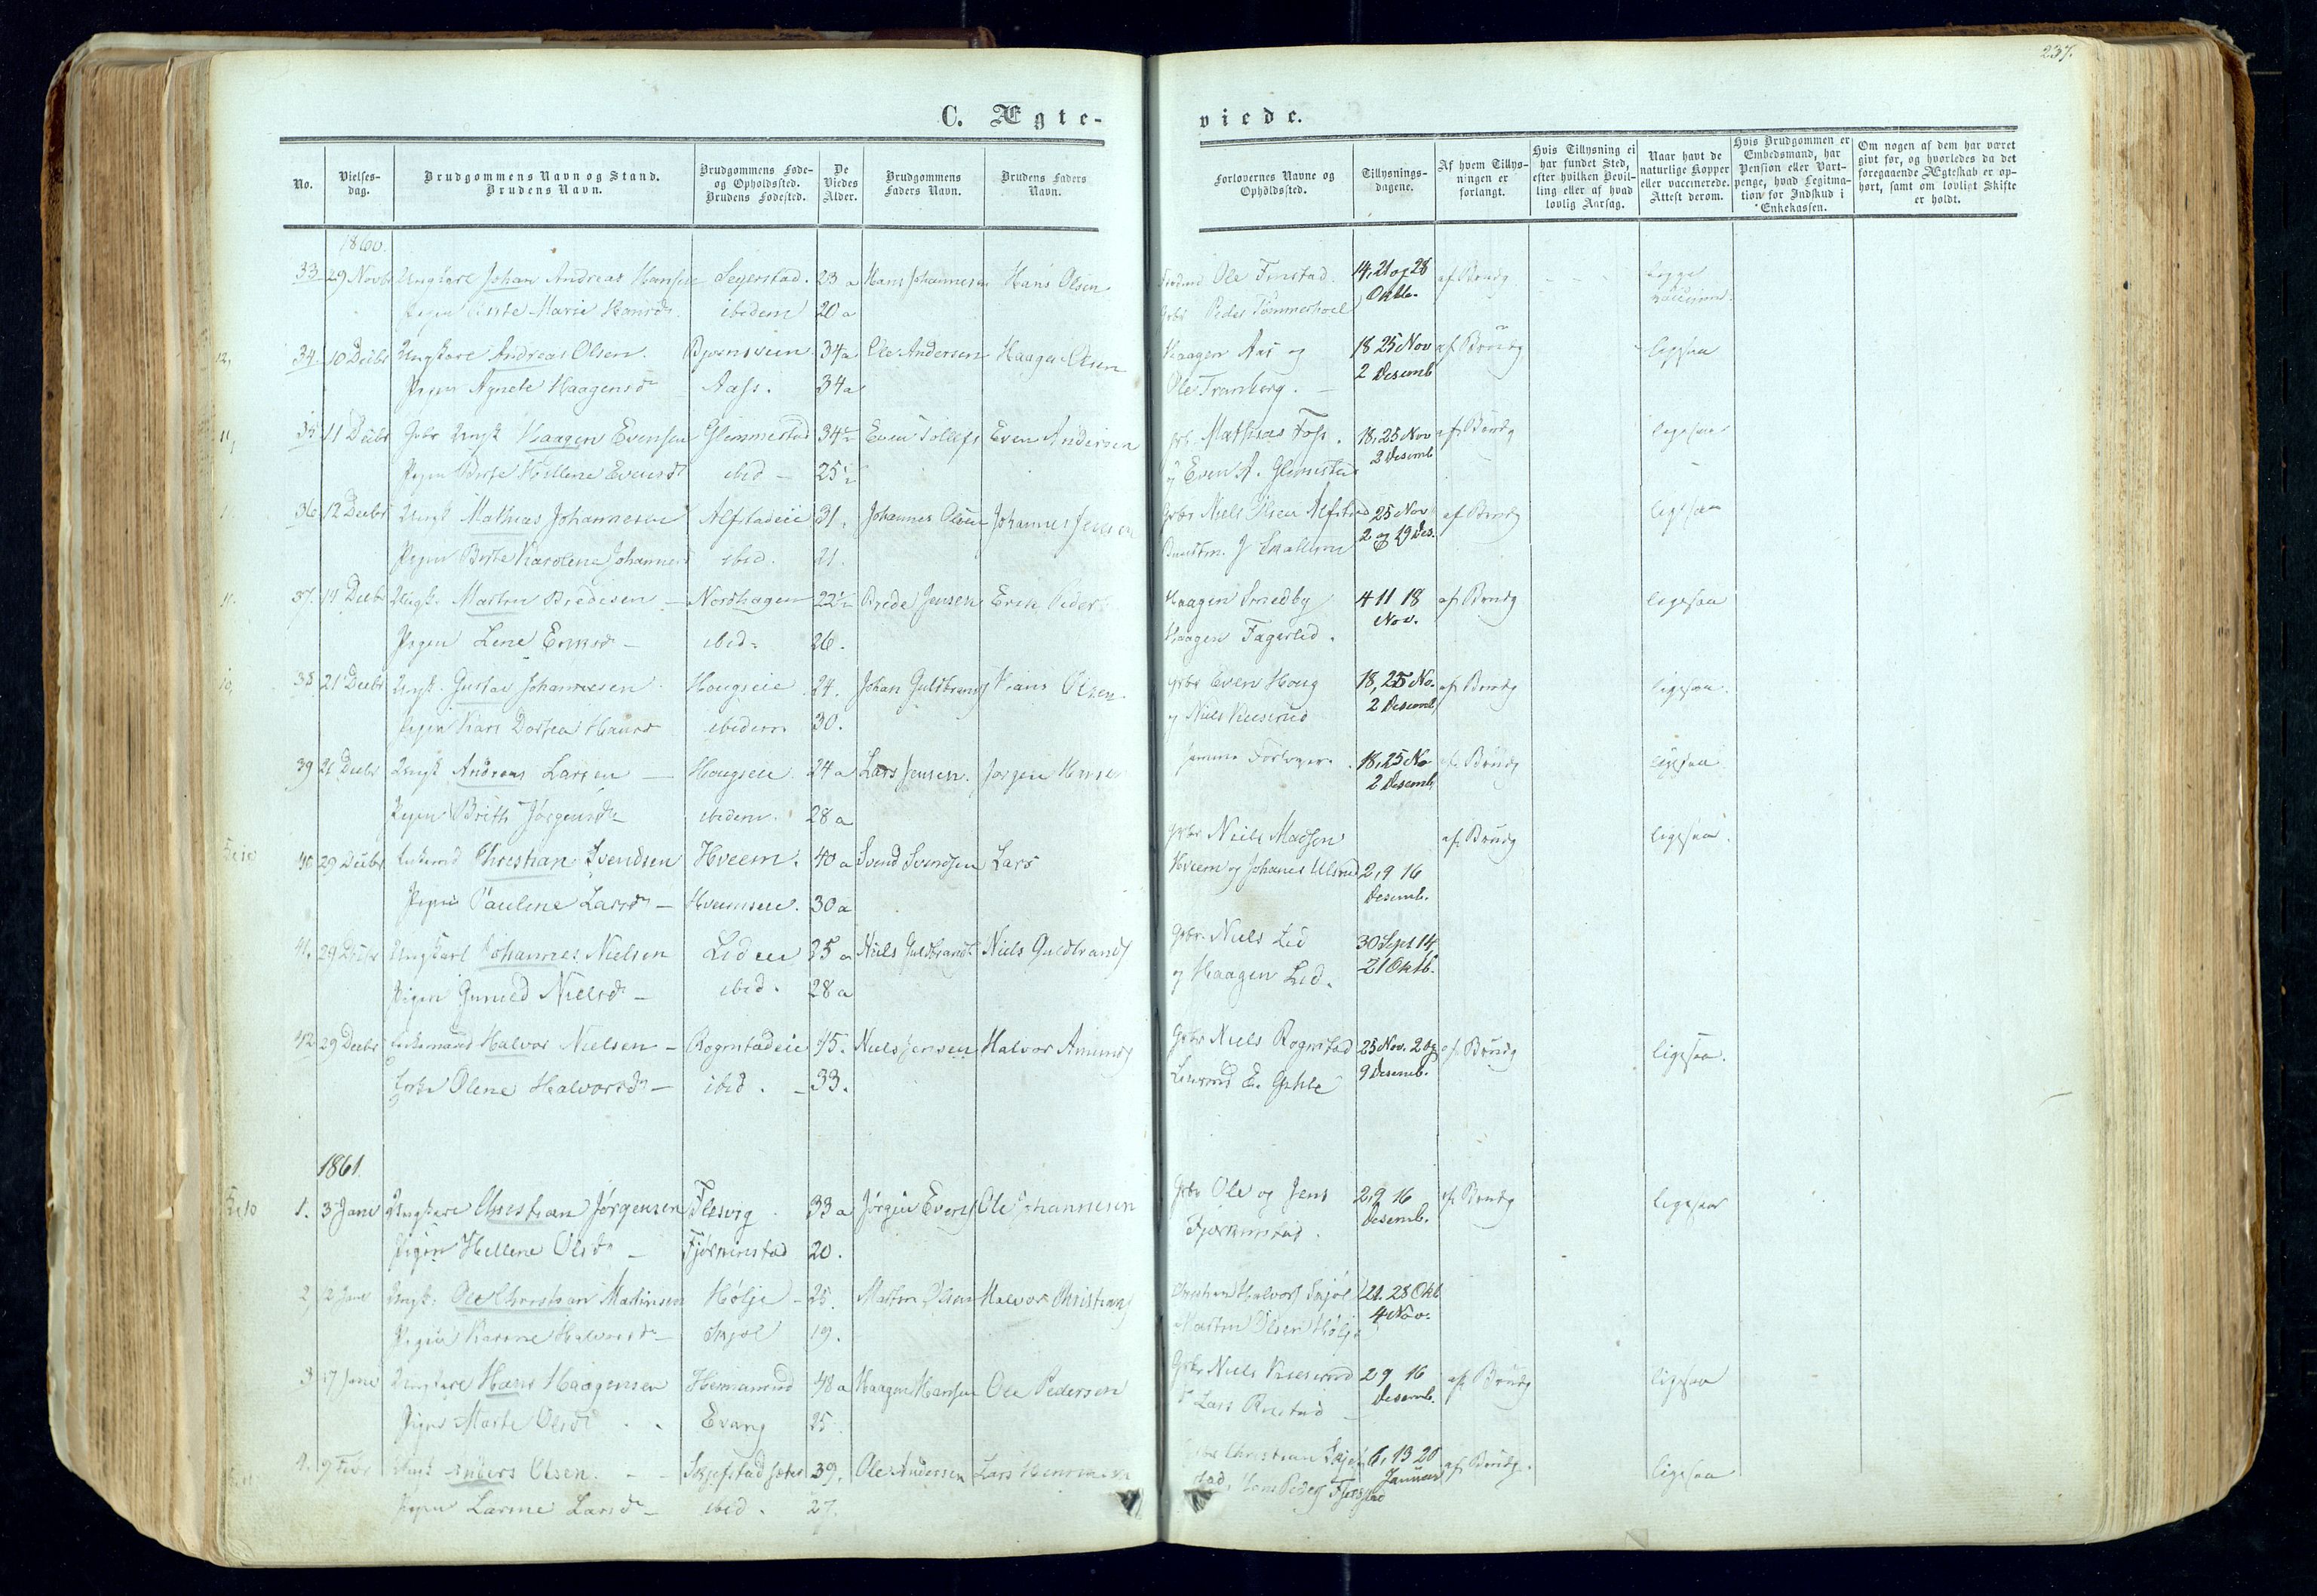 237.
C. Ægte-
viede.
No.
Vielses-
dag.
Brudgommens Navn og Stand.
Brudens Navn.
Brudgommens Føde-
og Opholdssted.
Brudens Fødested.
De
Viedes
Alder.
Brudgommens
Faders Navn.
Brudens Faders
Navn.
Forlovernes Navne og
Opholdssted.
Tillysnings-
dagene.
Af hvem Tillys-
ningen er
forlangt.
Hvis Tillysning ei
har fundet Sted,
efter hvilken Bevil-
ling eller af hvad
lovlig Aarsag.
Naar havt de
naturlige Kopper
eller vaccinerede.
Attest derom.
Hvis Brudgommen er
Embedsmand, har
Pension eller Vart-
penge, hvad Legitima-
tion for Indskud i
Enkekassen.
Om nogen af dem har været
givt før, og hvorledes da det
foregaaende Ægteskab er op-
hørt, samt om lovligt Skifte
er holdt.
1860.
33 29 Novbr Ungkarl Johan Andreas Hansen Segerstad. 23 a Hans Johannesen Hans Olsen Ole Finstad. 14, 21 og 28 af Brudg begge
Pigen Marie Hansd. ibidem 20 a Peder Tømmerhoel Oktb. vaccinerede.
34. 10 Decbr Ungkarl Andreas Olsen. Bjørnsveen 34 a Ole Andersen Haagen Olsen Haagen Aas og 18 25 Nov af Brudg ligesaa
Pigen Agnete Haagensd Aass. 34 a Ole Tranberg. 2 Desemb
35 11 Decbr Ungk Haagen Evensen Glemmestad 34½ Even Tollefs Even Andersen Mathias Foss. 18, 25 Nov af Brudg ligesaa
Pigen Hellene Evensd ibid 25½ og Even A. Glemestad 2 Desemb
36 12 Decbr Ungk Mathias Johannesen Alfstadeie 31. Johannes Olsen Johannes Jensen Grbr Niels Olsen Alfstad 25 Nov af Brudg ligesaa
Pigen Berte Karolene Johannesd ibid. 21. 2 og 9 Des.
37. Decbr Ungk. Martin Bredesen Nordhagen 22½ Brede Jensen Erik Peders Haagen Smedby 4 11 18 af Brudg ligesaa
Pigen Lene Eriksd ibid. 26. Haagen Fagerlid. Nov.
38 21 Decbr Ungk. Gustav Johannesen Hougseie 24. Johan Guldbrands Hans Olsen Grbr Even Houg 18, 25 No. af Brudg ligesaa.
Pigen Kari Dorthea Hansd ibidem 30. og Niels 2 Desemb
39 21 Decbr Ungk Andreas Larsen Hougseie. 24 a Lars Jensen. Jørgen Hansen samme Forlovere. 18, 25 No af Brudg ligesaa
Pigen Brith Jørgensd ibidem. 28 a 2 Desemb
40 29 Decbr Enkemd Christian Svendsen Hveem. 40 a Svend Svendsen Lars Grbr Niels Madsen af Brudg ligesaa.
Pigen Pauline Larsd Hveemseie. 30 a Hveem og Johanes Ulsrud 2, 9 16 Desemb.
41. 29 Decbr Ungkarl Johannes Nielsen Lideie 35 a Niels Guldbrands Niels Guldbrands Grbr. Niels Lid 30 Sept 14,
Pigen Gunild Nielsd ibid. 28 a og Haagen Lid. 21 Oktb.
42 29 Decbr Enkemand Halvor Nielsen Rognstadeie 45. Niels Jensen Halvor Amunds Grbr Niels Rognstad 25 Nov. 2 og af Brudg ligesaa.
Enke Olene Halvorsd ibid. 33. E. Gihle 9 Desemb.
1861.
1. 3 Janr Ungkarl Christian Jørgensen Flesvig 33 a Jørgen Evens Ole Johannesen Grbr Ole og Jens 2, 9 16 af Brudg ligesaa
Pigen Hellene Olsd Fjørkenstad 20. Fjørkenstad. Desemb.
2 12 Janr Ungk. Ole Christian Martinsen Hølje 25. Martin Olsen Halvor Christians Christian Halvors Skjøl 21. 28 Okt
Pigen Karine Halvorsd Skjøl 19. Martin Olsen Hølje 4 Nov.
3 17 Janr Ungkarl Hans Haagensen 48 a Haagen Hansen Ole Pedersen Grbr Niels 2 9 16 af Brudg ligesaa
Pigen Marte Olsd Evang 25 Lars Desemb.
4. 9 Febr Ungk Anders Olsen. Skjefstad sæter 39. Ole Andersen Lars Christian Skjef- 6, 13 20 af Brudg. ligesaa
Pigen Larine Larsd ibid. 27. stad, Januar